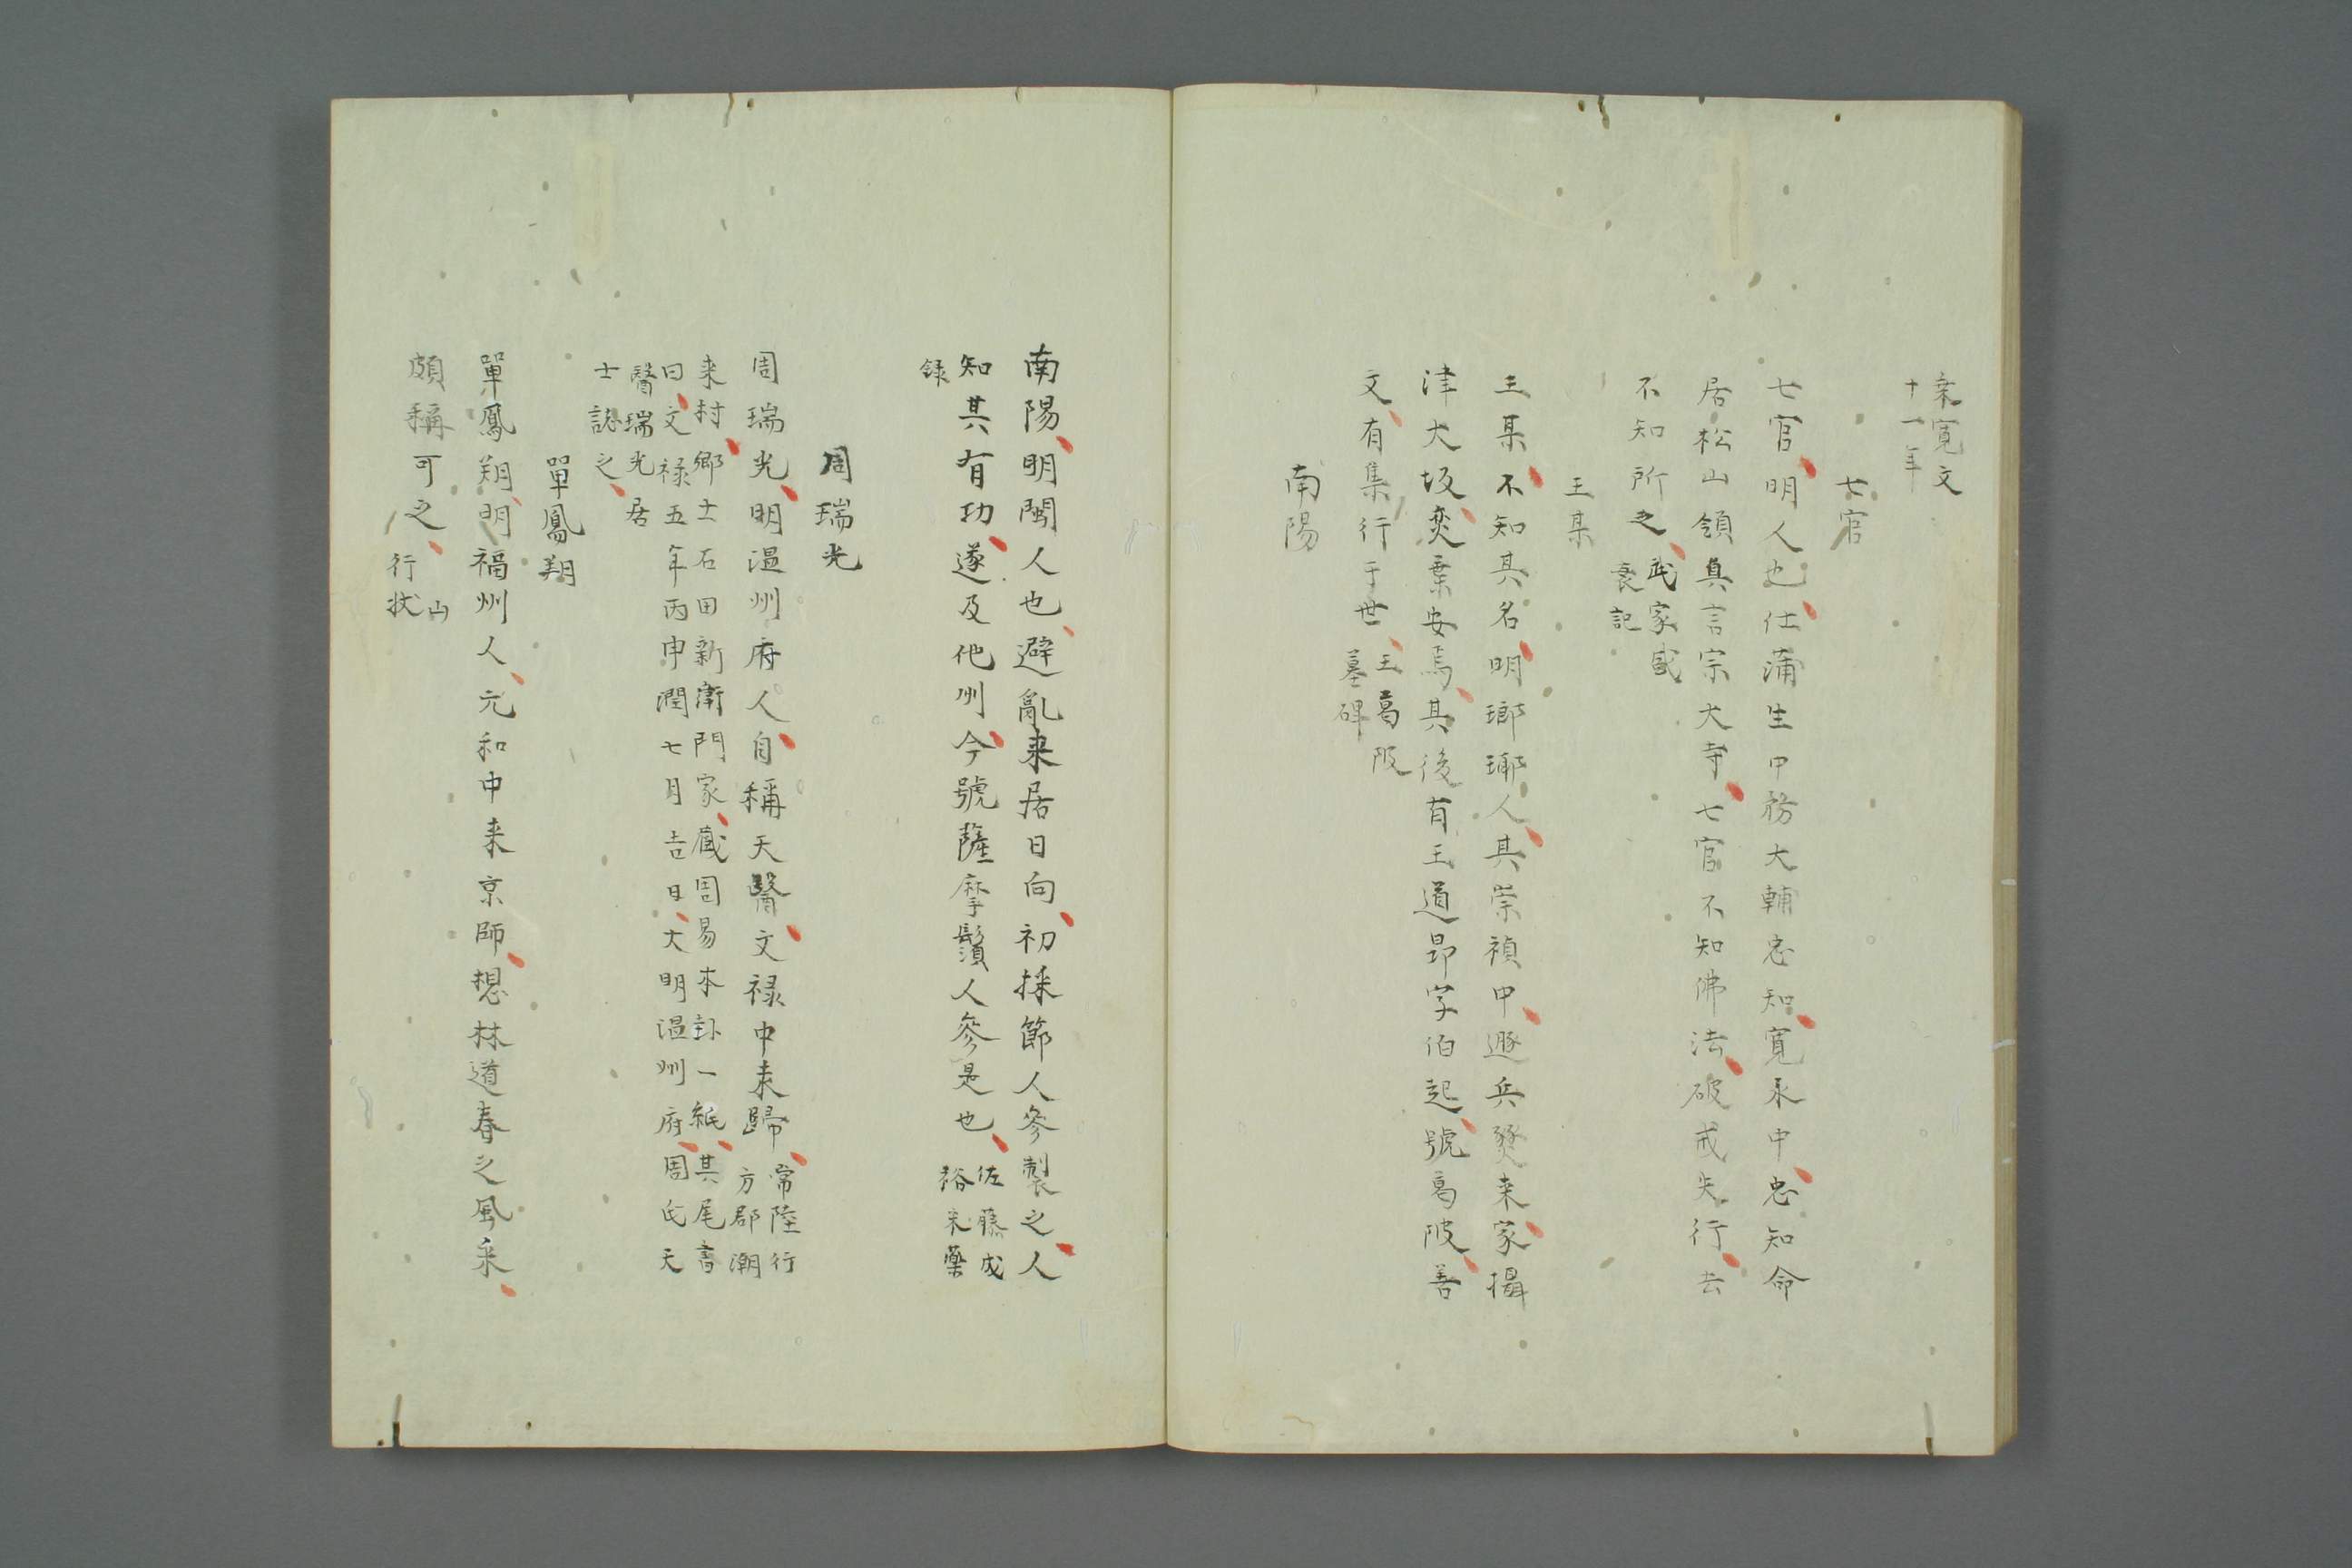 来寛文
十一年
七官
七官明人也仕蒲生中務大輔忠知寛永中忠知命
居松山領真言宗大寺七官不知佛法破戒失行去
不知所之
武家盛
衰記
王某
王某不知其名明瑯琊人其崇禎中遯兵燹来家攝
津大坂奕棄安焉其後有王道昻字伯起號葛陂善
文有集行于世
王葛陂
墓碑
南陽
南陽明閩人也避亂来居日向初採節人參製之人
知其有功遂及他州今號薩摩鬚人參是也
佐藤成
裕采藥
録
周瑞光
周瑞光明温州府人自稱天醫文禄中来歸
常陸行
方郡潮
来村郷士石田新衛門家蔵周易本卦一紙其尾書
曰文禄五年丙申潤七月吉日大明温州府周氏天
醫瑞光居
士誌之
單鳳翔
單鳳翔明福州人元和中来京師想林道春之風采
頗稱可之
山
行状